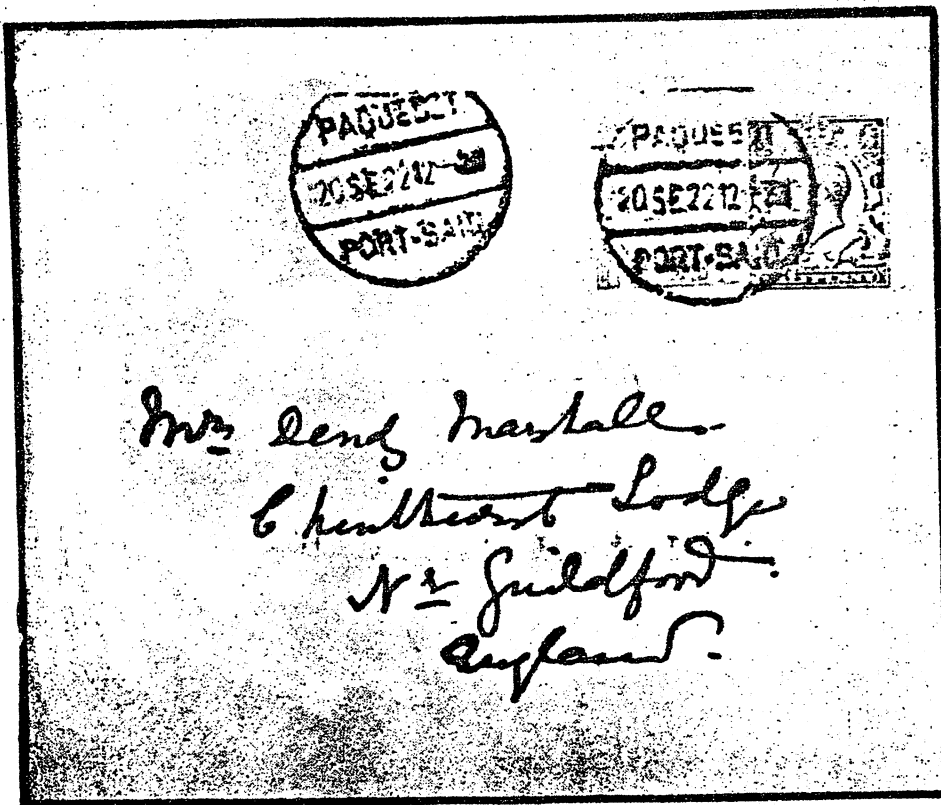 PAQUEBOT
20SE2212
PORT-SAID
PAQUEB
20SE2212
PORT-SAID
Mrs Dendy Marshall
Chinthurst Lodge
Nr Guildford.
England.